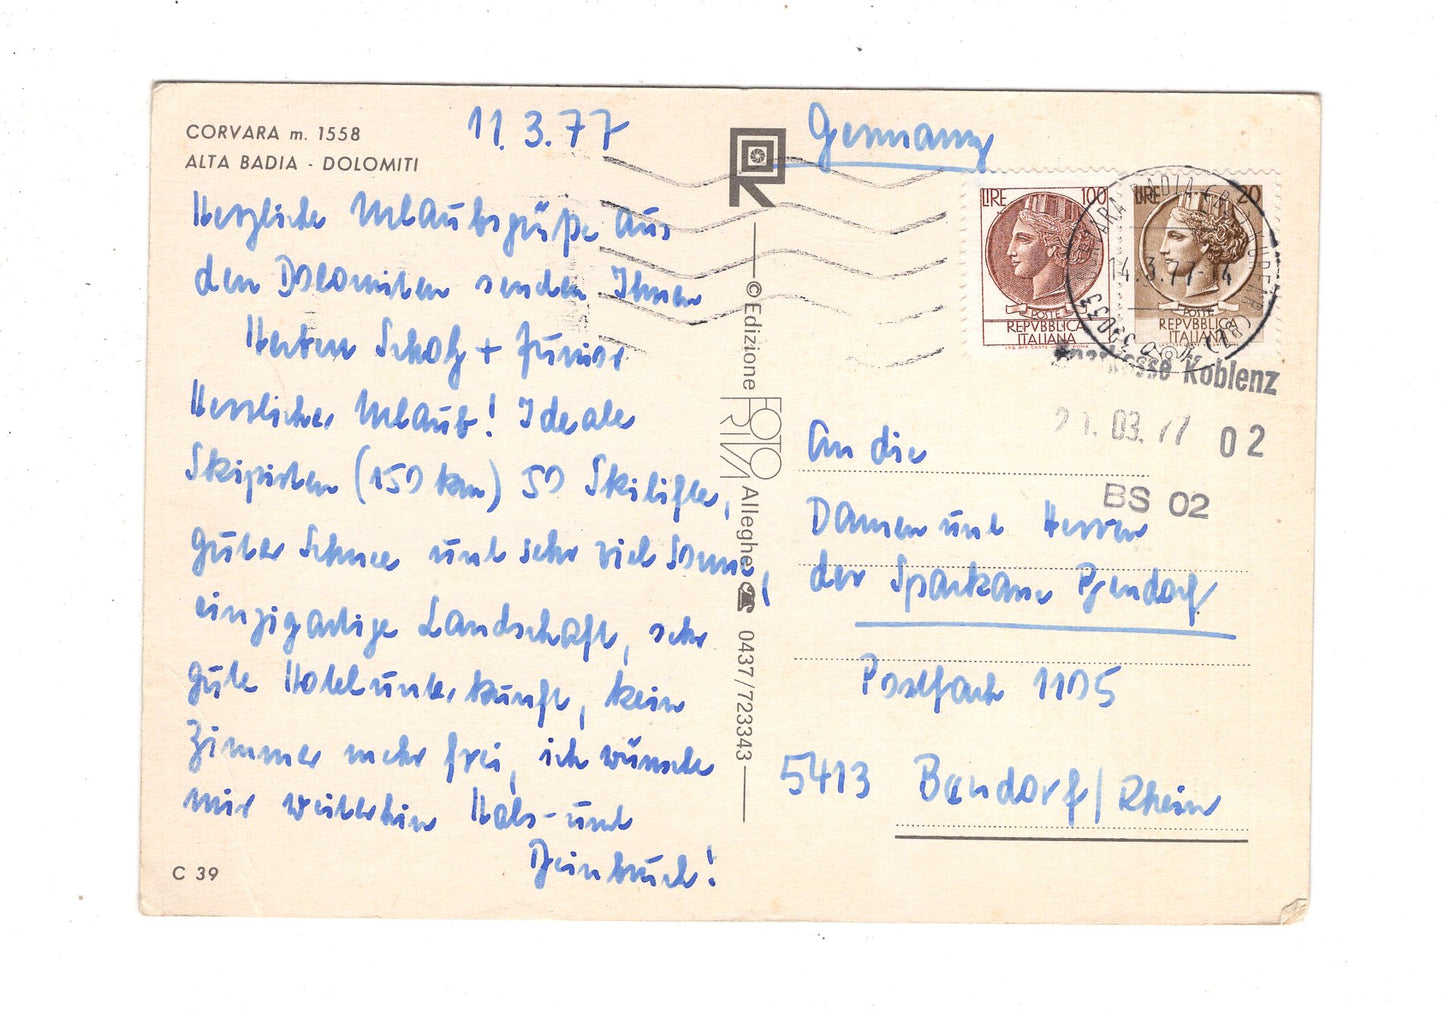 CORVARA m. 1558
ALTA BADIA - DOLOMITI
11.3.77
Herzliche Urlaubsgrüße aus
den Dolomiten senden Ihnen
Scholz + Junior.
Herrlicher Urlaub! Ideale
Skipisten (150 km) 50 Skilifte,
guter Schnee und sehr viel Sonne,
einzigartige Landschaft, sehr
gute Hotelunterkunft, kein
Zimmer mehr frei, ich wünsche
mir weiterhin Hals- und
Beinbruch!
C 39
© Edizione FOTO RIVA Alleghe ☎ 0437/723343
Germany
LIRE 100
POSTE
REPVBBLICA
ITALIANA
LIRE 20
POSTE
REPVBBLICA
ITALIANA
14.3.77-14
33033
Sparkasse Koblenz
21. 03. 77 02
BS 02
An die
Damen und Herren
der Sparkasse Bendorf
Postfach 1105
5413 Bendorf/Rhein